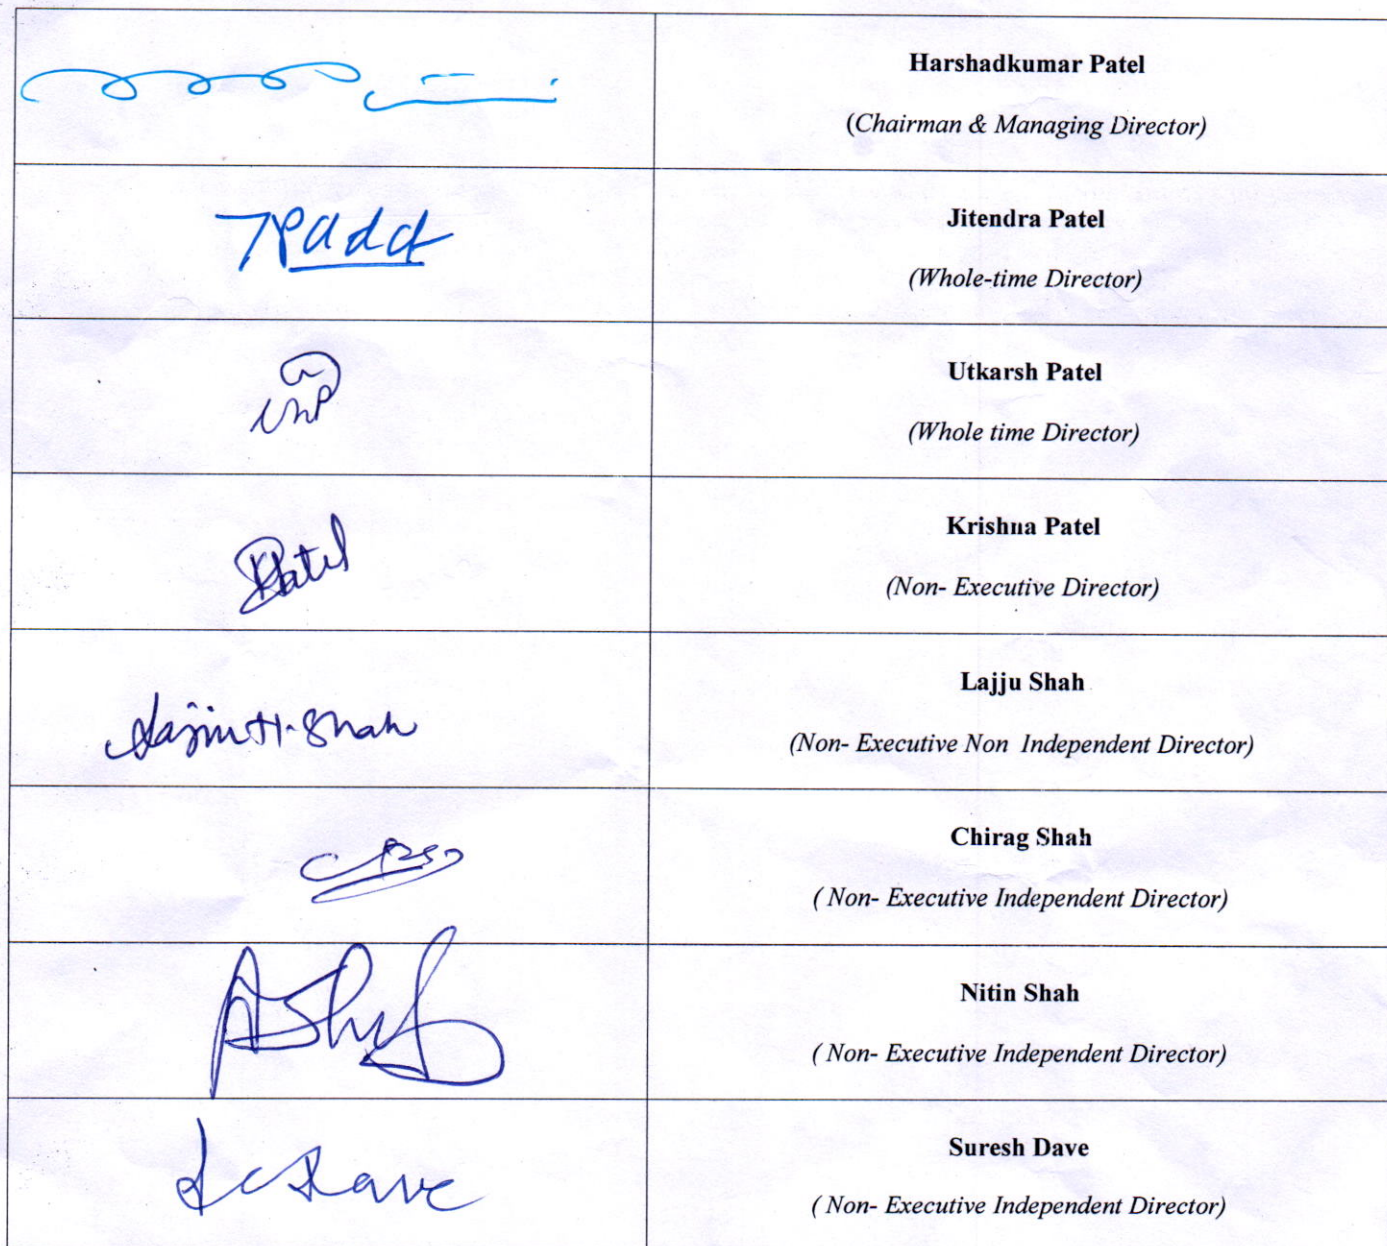 Harshadkumar Patel
(Chairman & Managing Director)
Jitendra Patel
(Whole-time Director)
Utkarsh Patel
(Whole time Director)
Krishna Patel
(Non- Executive Director)
Lajju Shah
Lajju H. Shah
(Non- Executive Non Independent Director)
Chirag Shah
( Non- Executive Independent Director)
Nitin Shah
( Non- Executive Independent Director)
Suresh Dave
( Non- Executive Independent Director)